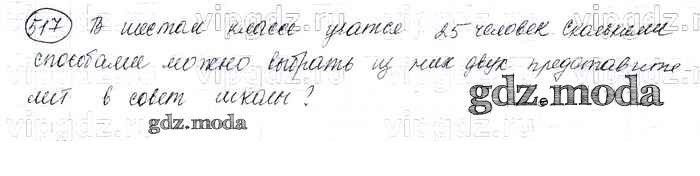 517 В шестом классе учатся 25 человек Сколькими
способами можно выбрать из них двух представите
лей в совет школы?
gdz.moda
gdz.moda
vipgdz.ru
vipgdz.ru